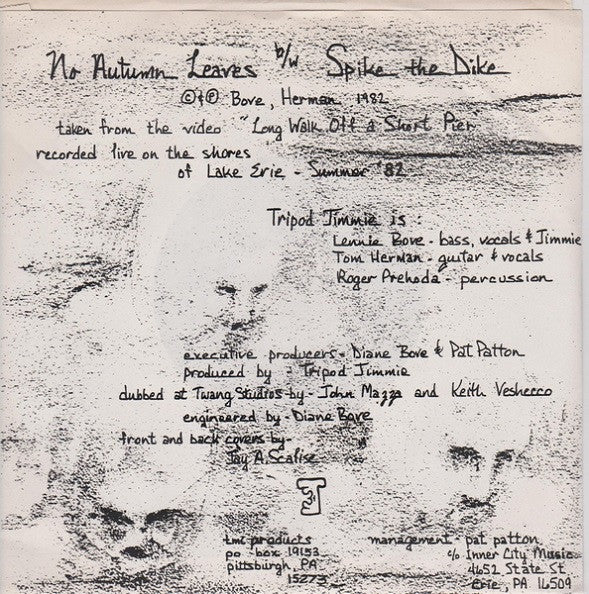 No Autumn Leaves b/w Spike the Dike
©&℗ Bove, Herman 1982
taken from the video "Long Walk Off a Short Pier
recorded live on the shores
of Lake Erie - Summer '82
Tripod Jimmie is:
Lennie Bove - bass, vocals & Jimmie
Tom Herman - guitar & vocals
Roger Prehoda - percussion
executive producers - Diane Bove & Pat Patton
produced by - Tripod Jimmie
dubbed at Twang Studios by - John Mazza and Keith Veshecco
engineered by - Diane Bove
front and back covers by -
Jay A. Scalise
tmi products
po box 19153
pittsburgh, PA
15273
management - pat patton
c/o Inner City Music
4652 State St
Erie, PA 16509